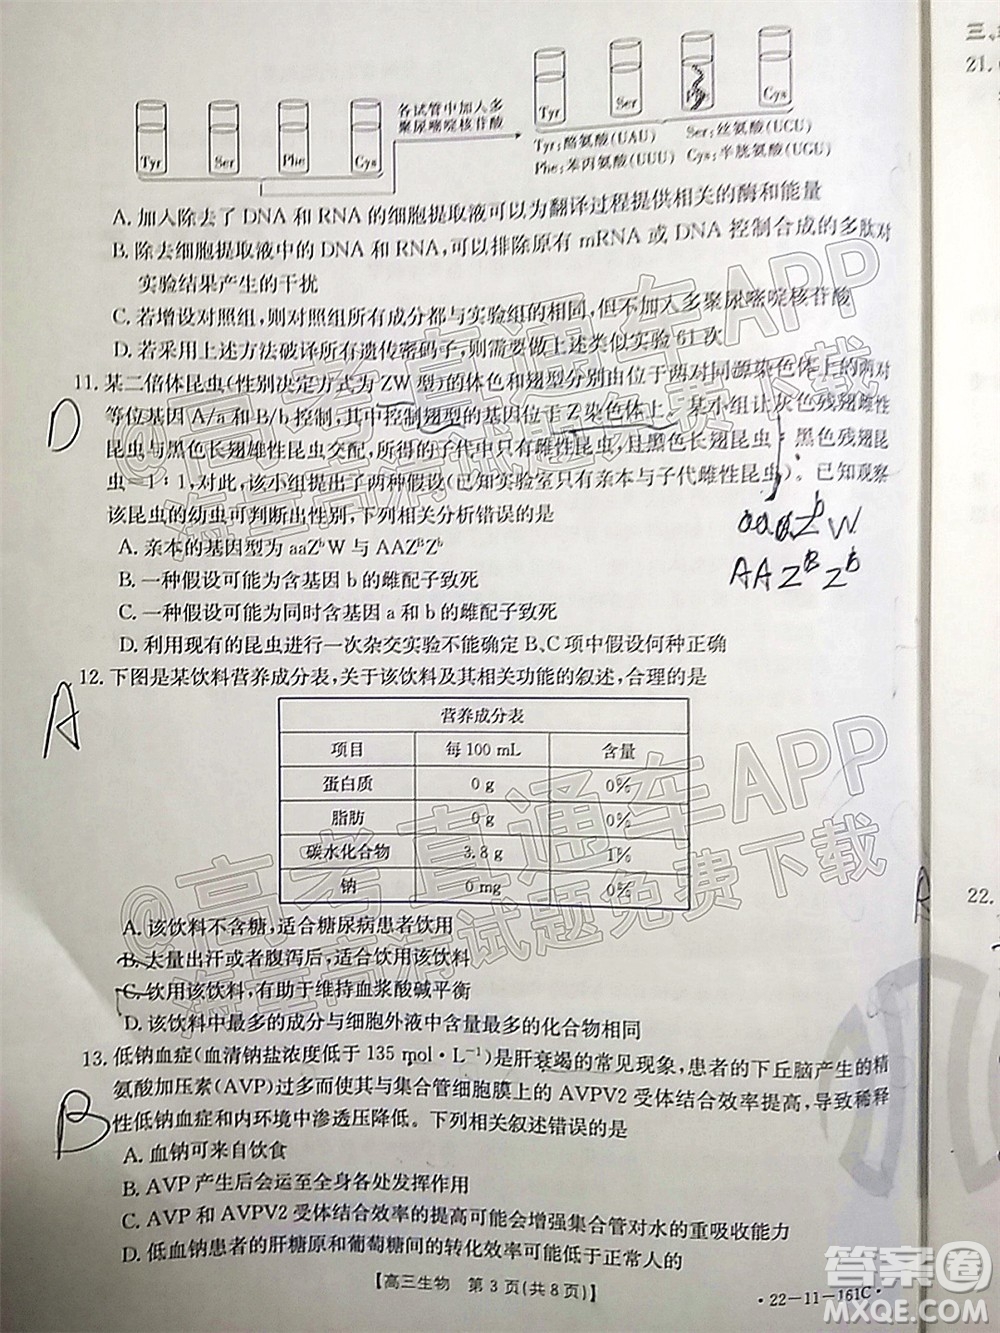 各试管中加入多
聚尿嘧啶核苷酸
Tyr Ser Phe Cys
Tyr Ser Phe Cys
Tyr:酪氨酸(UAU) Ser:丝氨酸(UCU)
Phe:苯丙氨酸(UUU) Cys:半胱氨酸(UGU)
A. 加入除去了 DNA 和 RNA 的细胞提取液可以为翻译过程提供相关的酶和能量
B. 除去细胞提取液中的 DNA 和 RNA,可以排除原有 mRNA 或 DNA 控制合成的多肽对
实验结果产生的干扰
C. 若增设对照组,则对照组所有成分都与实验组的相同,但不加入多聚尿嘧啶核苷酸
D. 若采用上述方法破译所有遗传密码子,则需要依次更换上述实验 61 次
11. 某二倍体昆虫(性别决定方式为 ZW 型)的体色和翅型分别由位于两对同源染色体上的两对
等位基因 A/a 和 B/b 控制,其中控制翅型的基因位于 Z 染色体上。某小组让灰色残翅雌性
昆虫与黑色长翅雄性昆虫交配,所得的子代中只有雌性昆虫,且黑色长翅昆虫:黑色残翅昆
虫=1:1,对此,该小组提出了两种假设(已知实验室只有亲本与子代雌性昆虫)。已知观察
该昆虫的幼虫可判断出性别,下列相关分析错误的是
D
aaZbW
AAZBZb
A. 亲本的基因型为 aaZbW 与 AAZBZb
B. 一种假设可能为含基因 b 的雌配子致死
C. 一种假设可能为同时含基因 a 和 b 的雌配子致死
D. 利用现有的昆虫进行一次杂交实验不能确定 B、C 项中假设何种正确
12. 下图是某饮料营养成分表,关于该饮料及其相关功能的叙述,合理的是
A
营养成分表
项目 每 100 mL 含量
蛋白质 0 g 0%
脂肪 0 g 0%
碳水化合物 3.8 g 1%
钠 0 mg 0%
A. 该饮料不含糖,适合糖尿病患者饮用
B. 大量出汗或者腹泻后,适合饮用该饮料
C. 饮用该饮料,有助于维持血浆酸碱平衡
D. 该饮料中最多的成分与细胞外液中含量最多的化合物相同
13. 低钠血症(血清钠盐浓度低于 135 mol·L-1)是肝衰竭的常见现象,患者的下丘脑产生的精
氨酸加压素(AVP)过多而使其与集合管细胞膜上的 AVPV2 受体结合效率提高,导致稀释
性低钠血症和内环境中渗透压降低。下列相关叙述错误的是
B
A. 血钠可来自饮食
B. AVP 产生后会运至全身各处发挥作用
C. AVP 和 AVPV2 受体结合效率的提高可能会增强集合管对水的重吸收能力
D. 低血钠患者的肝糖原和葡萄糖间的转化效率可能低于正常人
【高三生物 第 3 页(共 8 页)】
·22-11-161C·
三、
21.
22.
@高考直通车APP
海量高清试题免费下载
@高考直通车APP
海量高清试题免费下载
答案圈
MXQE.COM